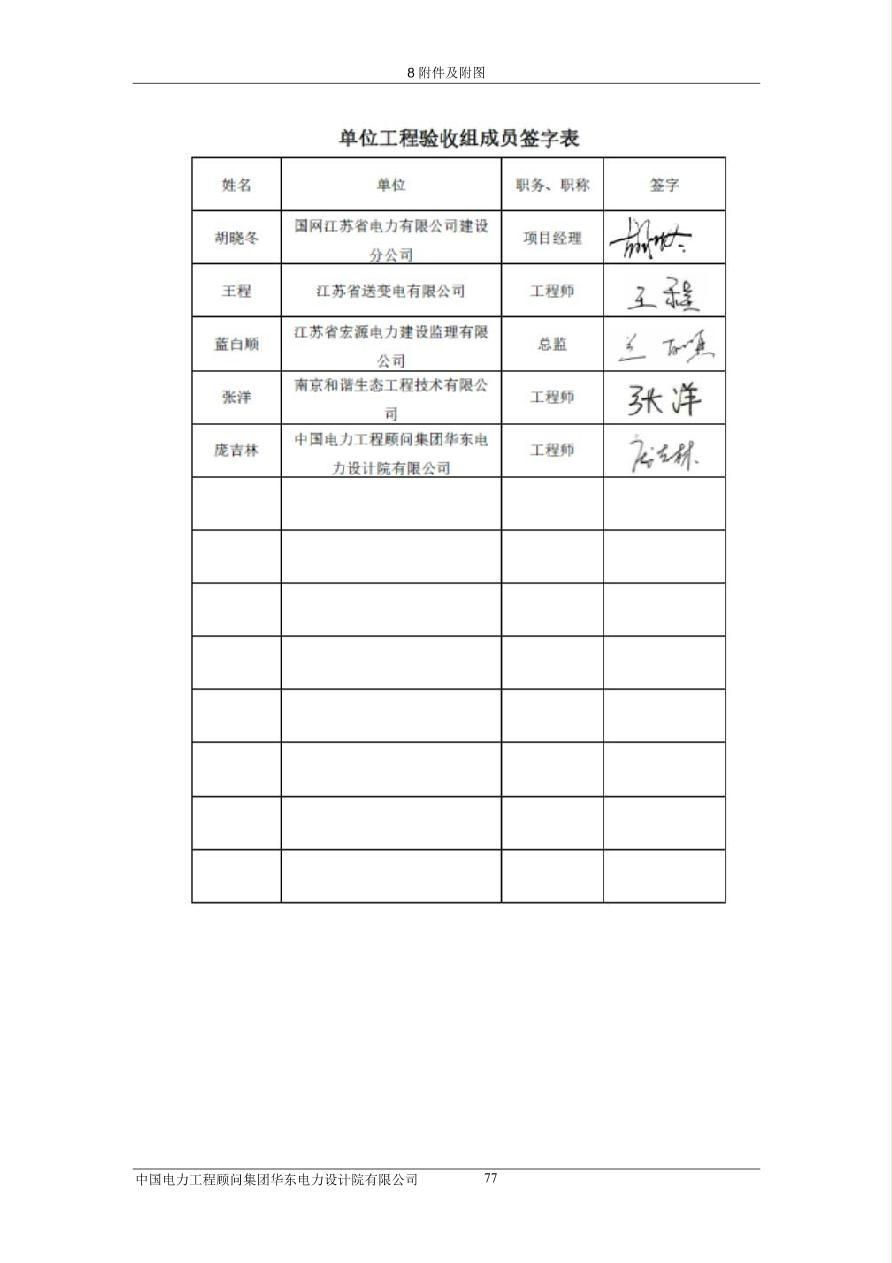 8 附件及附图
单位工程验收组成员签字表
姓名 单位 职务、职称 签字
胡晓冬 国网江苏省电力有限公司建设
分公司 项目经理 胡晓冬
王程 江苏省送变电有限公司 工程师 王程
蓝白顺 江苏省宏源电力建设监理有限
公司 总监
张洋 南京和谐生态工程技术有限公
司 工程师 张洋
庞吉林 中国电力工程顾问集团华东电
力设计院有限公司 工程师 庞吉林
中国电力工程顾问集团华东电力设计院有限公司 77